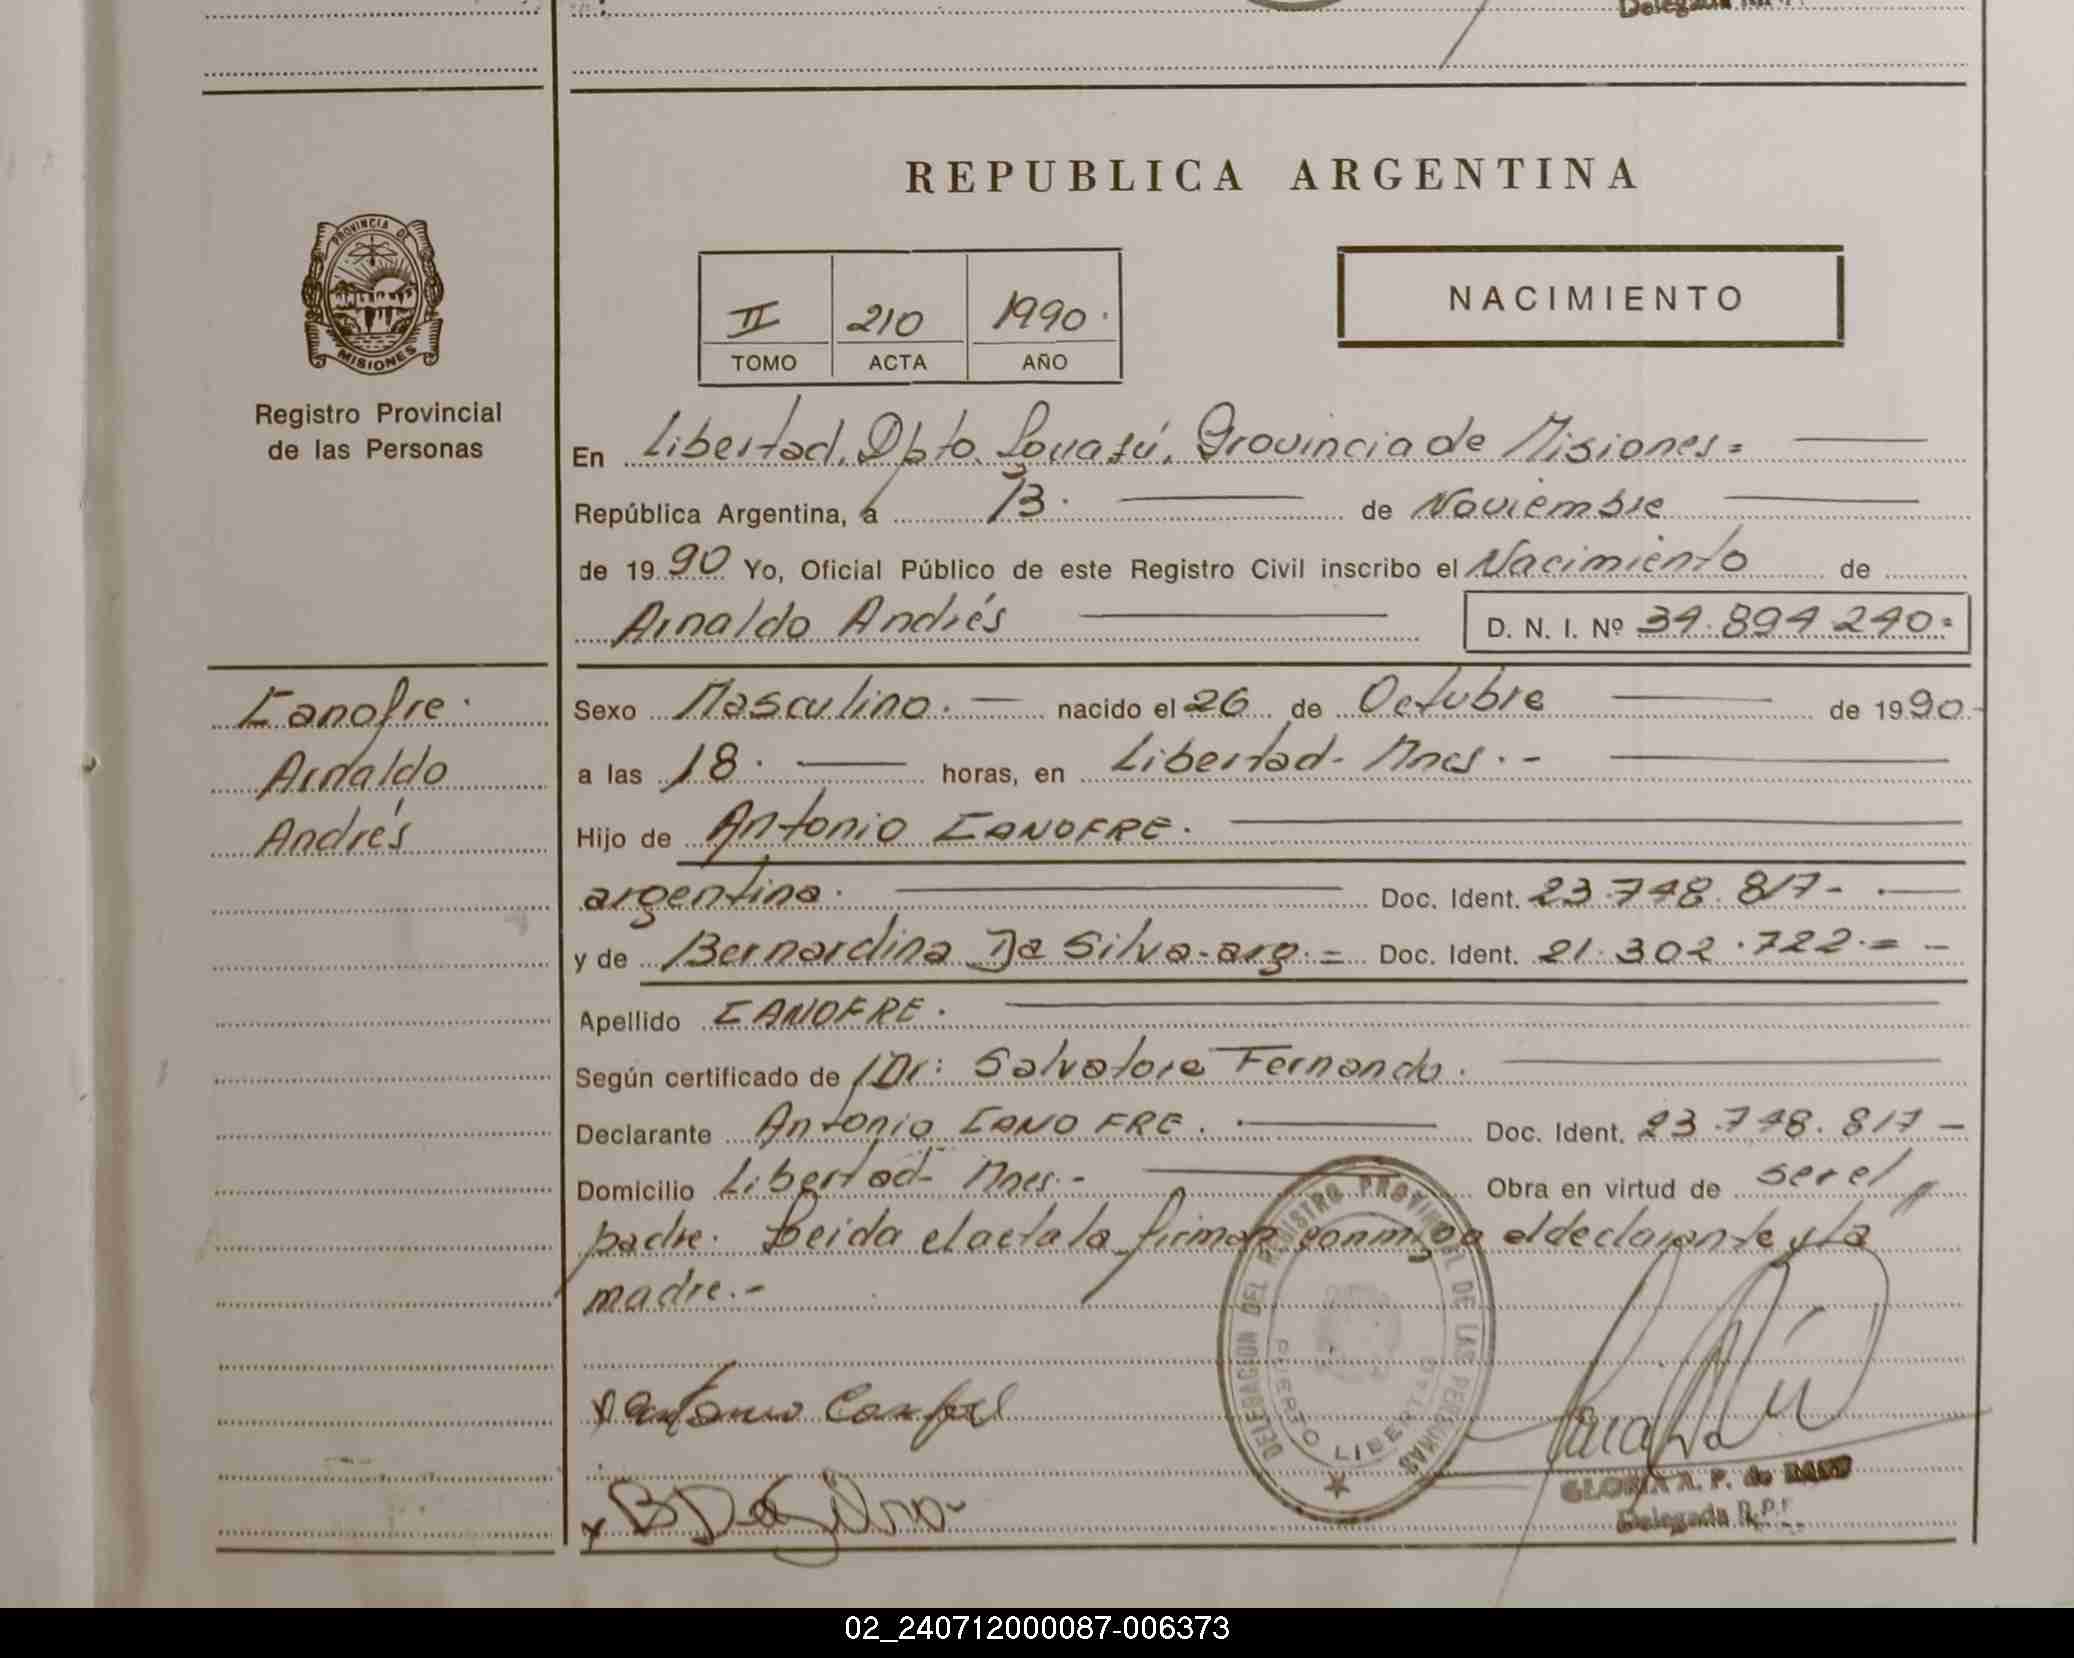 Delegada
REPUBLICA ARGENTINA
PROVINCIA DE
MISIONES
Registro Provincial
de las Personas
II 210 1990.
TOMO ACTA AÑO
NACIMIENTO
En Libertad, Dpto. Iguazú, Provincia de Misiones=
República Argentina, a 13. de Noviembre
de 1990 Yo, Oficial Público de este Registro Civil inscribo el Nacimiento de
Arnaldo Andrés
D. N. I. Nº 34.894.240=
Canofre.
Arnaldo
Andrés
Sexo Masculino.- nacido el 26 de Octubre de 1990.-
a las 18. horas, en Libertad- Mnes.-
Hijo de Antonio CANOFRE.
argentina. Doc. Ident. 23.748.817-
y de Bernardina Da Silva-arg.= Doc. Ident. 21.302.722.=-
Apellido CANOFRE.
Según certificado de Dr: Salvatore Fernando.
Declarante Antonio CANOFRE. Doc. Ident. 23.748.817-
Domicilio Libertad- Mnes.- Obra en virtud de ser el
padre. Leida el acta la firman conmigo el declarante y la
madre.-
DELEGACION DEL REGISTRO PROVINCIAL DE LAS PERSONAS
PUERTO LIBERTAD
Antonio
B Da Silva
GLORIA A. P. de
Delegada R.P.P.
02_240712000087-006373